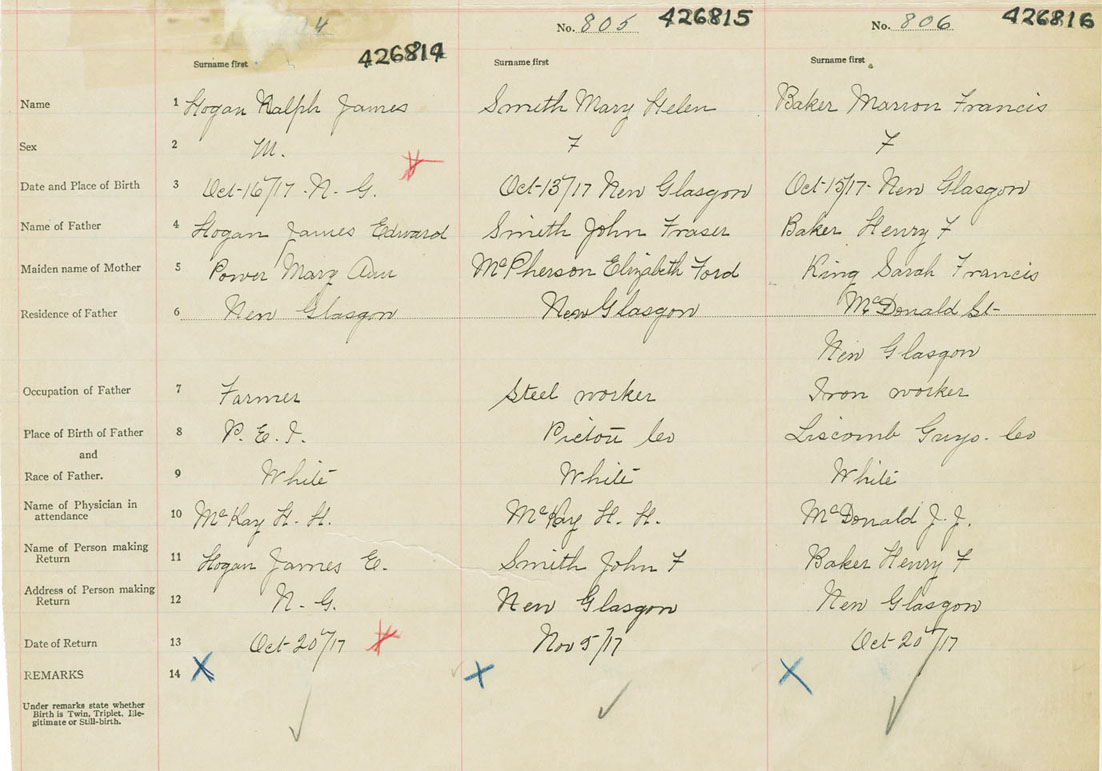 4 No. 805 426815 No. 806 426816
426814
Surname first Surname first Surname first
Name 1 Hogan Ralph James Smith Mary Helen Baker Marion Francis
Sex 2 M. F F
Date and Place of Birth 3 Oct-16/17-N. G. Oct-13/17 New Glasgow Oct-15/17- New Glasgow
Name of Father 4 Hogan James Edward Smith John Fraser Baker Henry F
Maiden name of Mother 5 Power Mary Ann McPherson Elizabeth Ford King Sarah Francis
Residence of Father 6 New Glasgow New Glasgow McDonald St-
New Glasgow
Occupation of Father 7 Farmer Steel worker Iron worker
Place of Birth of Father 8 P. E. I. Pictou Co Liscomb Guys. Co
and
Race of Father. 9 White White White
Name of Physician in
attendance 10 McKay H. H. McKay H. H. McDonald J. J.
Name of Person making
Return 11 Hogan James E. Smith John F Baker Henry F
Address of Person making
Return 12 N. G. New Glasgow New Glasgow
Date of Return 13 Oct-20/17 Nov 5/17 Oct-20/17
REMARKS 14 X X X
Under remarks state whether
Birth is Twin, Triplet, Ille-
gitimate or Still-birth.